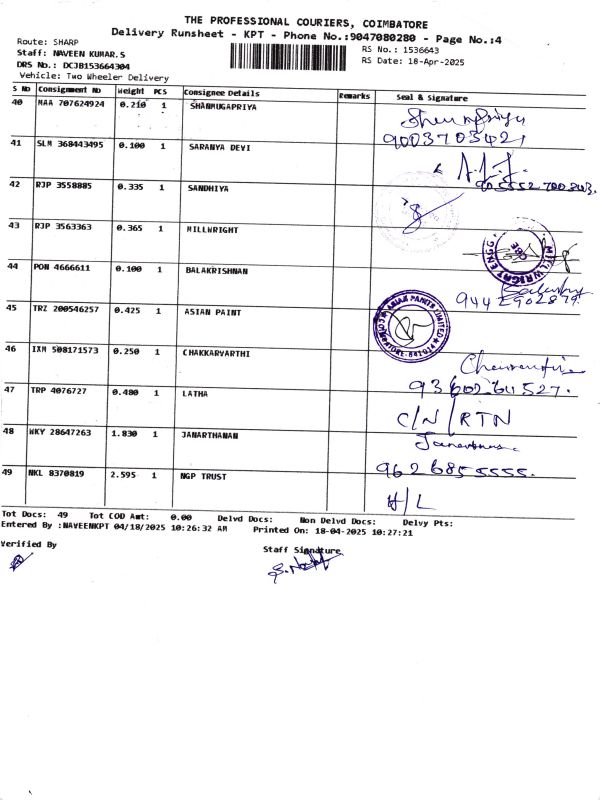 THE PROFESSIONAL COURIERS, COIMBATORE
Delivery Runsheet - KPT - Phone No.:9047080280 - Page No.:4
Route: SHARP
Staff: NAVEEN KUMAR.S
RS No.: 1536643
DRS No.: DCJB153664304
RS Date: 18-Apr-2025
Vehicle: Two Wheeler Delivery
S No Consignment No Weight PCS Consignee Details Remarks Seal & Signature
40 MAA 707624924 0.210 1 SHANMUGAPRIYA
9003703421
41 SLM 368443495 0.100 1 SARANYA DEVI
42 RJP 3558885 0.335 1 SANDHIYA
43 RJP 3563363 0.365 1 MILLWRIGHT
MILLWRIGHT ENGG. CBE
44 PON 4666611 0.100 1 BALAKRISHNAN
9442902879
45 TRZ 200546257 0.425 1 ASIAN PAINT
ASIAN PAINTS LIMITED COIMBATORE-641014
46 IXM 508171573 0.250 1 CHAKKARVARTHI
47 TRP 4076727 0.480 1 LATHA
C/N/RTN
48 WKY 28647263 1.830 1 JANARTHANAN
9626855555.
49 NKL 8370819 2.595 1 NGP TRUST
H/L
Tot Docs: 49 Tot COD Amt: 0.00 Delvd Docs: Non Delvd Docs: Delvy Pts:
Entered By :NAVEENKPT 04/18/2025 10:26:32 AM Printed On: 18-04-2025 10:27:21
Verified By
Staff Signature